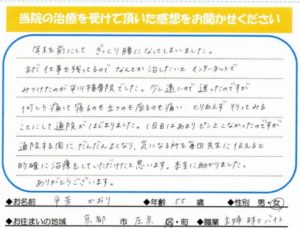 当院の治療を受けて頂いた感想をお聞かせください
年末を前にして ぎっくり腰になってしまいました。
まだ仕事も残ってるので なんとか治したいと インターネットで
みつけたのが 市川接骨院でした。少し遠いので 迷ったのですが
何しろ痛くて 寝るのも立つのも座るのも痛い とりあえず 行ってみる
ことにして通院がはじまりました。1日目はあまりピンとこなかったのですが
通院する間に だんだんよくなり、気になる所を毎回先生に伝えると
的確に治療をしていただけたと思います。本当に助かりました。
ありがとうございます。
◆お名前 かおり ◆年齢 55 歳 ◆性別 男・女
◆お住まいの地域 京都 市 左京 区・町 ◆職業 主婦 時々バイト